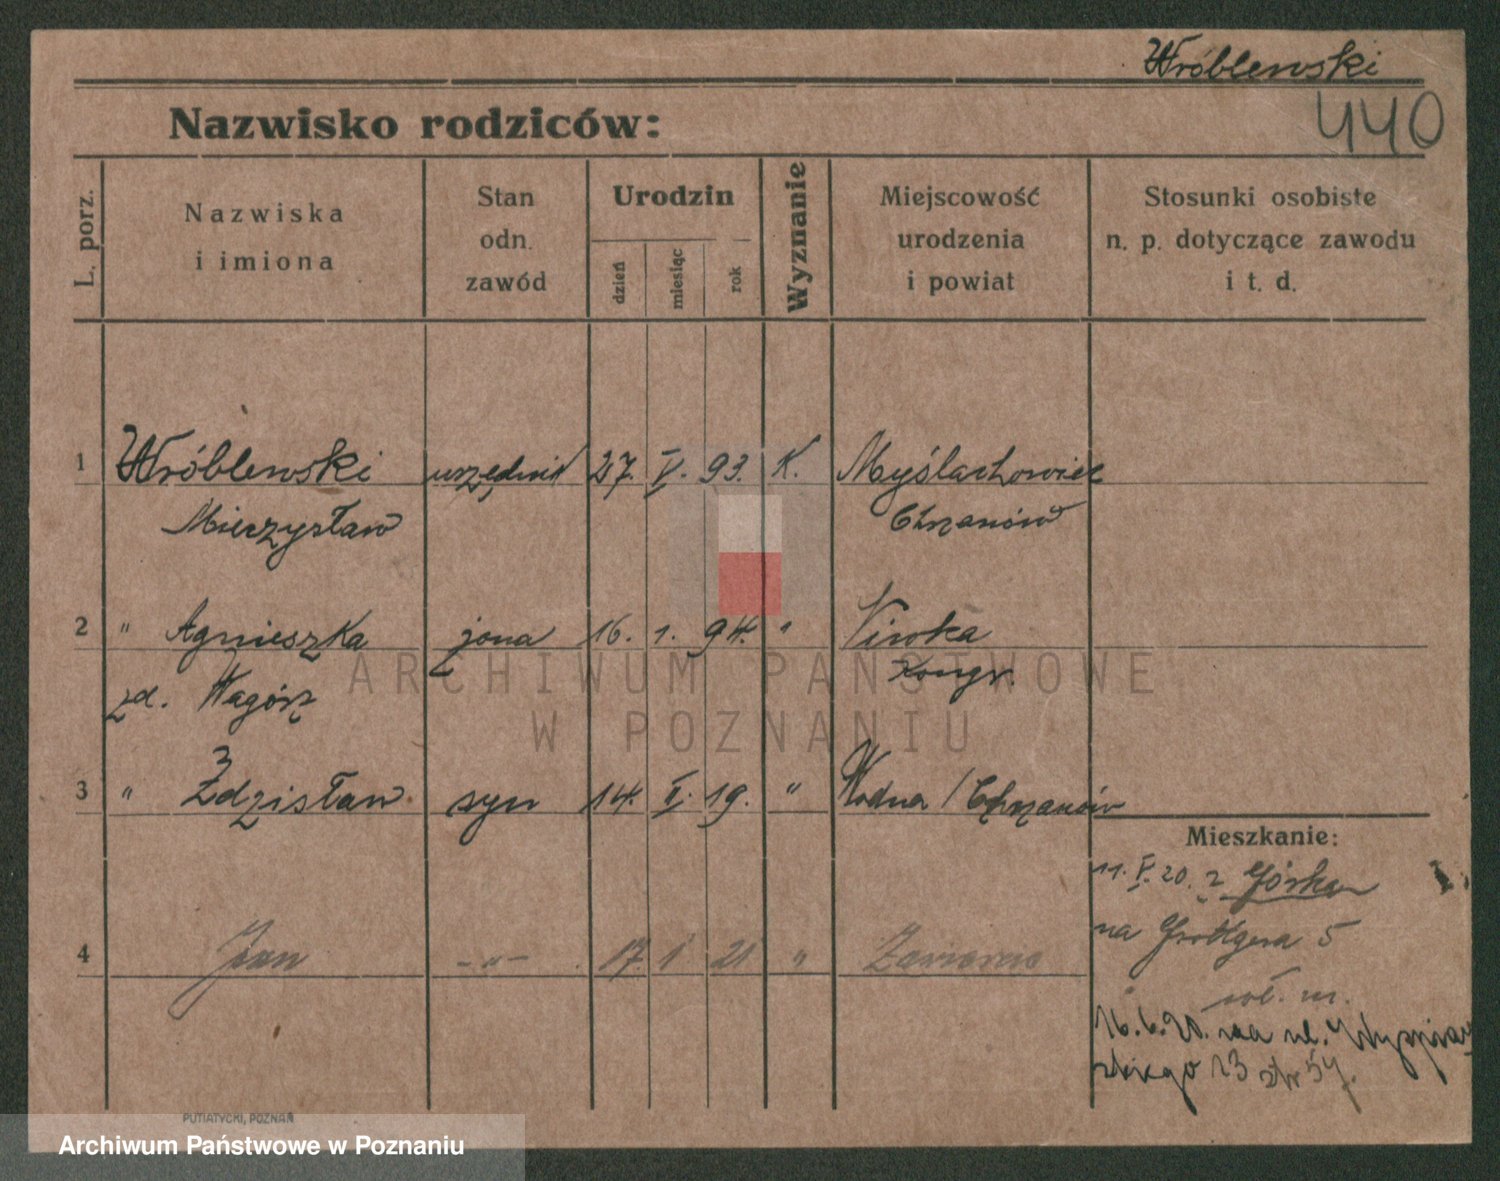 Wróblewski
440
Nazwisko rodziców:
L. porz.
Nazwiska
i imiona
Stan
odn.
zawód
Urodzin
dzień
miesiąc
rok
Wyznanie
Miejscowość
urodzenia
i powiat
Stosunki osobiste
n. p. dotyczące zawodu
i t. d.
1 Wróblewski urzędnik 27. V. 93. K. Myślachowice
Mieczysław Chrzanów
2 " Agnieszka żona 16. 1. 94. "
zd. Kongr.
3 " Zdzisław syn 14. V. 19. " Wodna / Chrzanów
Mieszkanie:
11. V. 20. z Górka
4 Jan -"- 17 1 21 " Zawiercie
na Grottgera 5
16.6.20. na ul. Wyspiań
skiego 13
PUTIATYCKI, POZNAŃ
ARCHIWUM PAŃSTWOWE
W POZNANIU
Archiwum Państwowe w Poznaniu